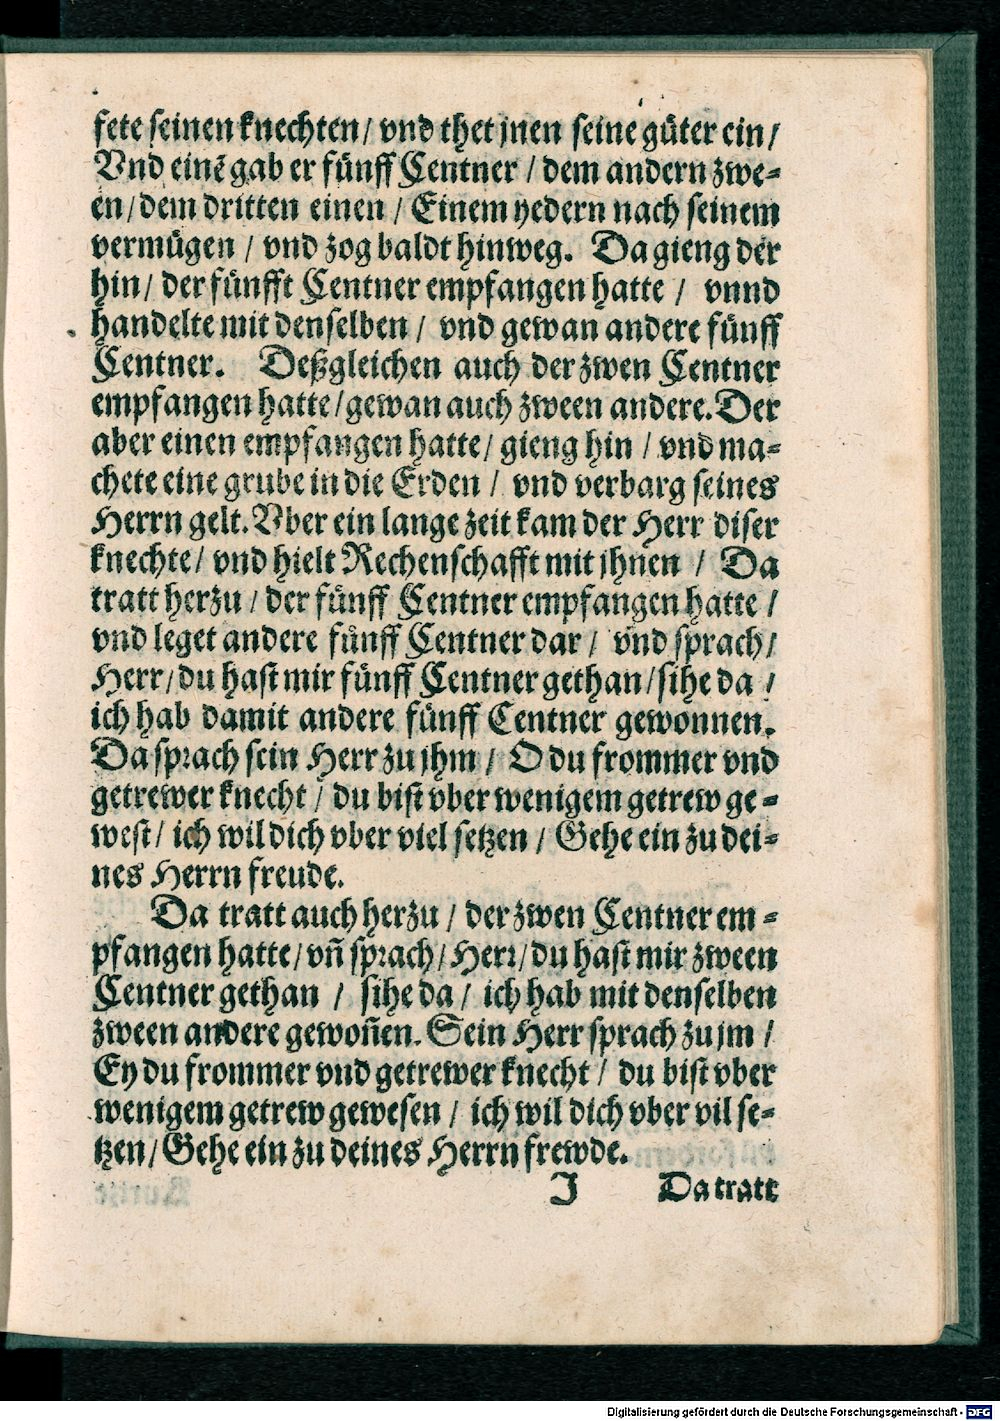 fete seinen knechten/ vnd thet jnen seine güter ein/
Vnd einē gab er fünff Centner / dem andern zwe=
en/ dem dritten einen / Einem yedern nach seinem
vermügen / vnd zog baldt hinweg. Da gieng der
hin/ der fünfft Centner empfangen hatte / vnnd
handelte mit denselben / vnd gewan andere fünff
Centner. Deßgleichen auch der zwen Centner
empfangen hatte/ gewan auch zween andere. Der
aber einen empfangen hatte/ gieng hin / vnd ma=
chete eine grube in die Erden / vnd verbarg seines
Herrn gelt. Vber ein lange zeit kam der Herr diser
knechte/ vnd hielt Rechenschafft mit jhnen / Da
tratt herzu / der fünff Centner empfangen hatte /
vnd leget andere fünff Centner dar / vnd sprach/
Herr/ du hast mir fünff Centner gethan/ sihe da /
ich hab damit andere fünff Centner gewonnen.
Da sprach sein Herr zu jhm / O du frommer vnd
getrewer knecht / du bist vber wenigem getrew ge=
west/ ich wil dich vber viel setzen / Gehe ein zu dei=
nes Herrn freude.
Da tratt auch herzu / der zwen Centner em=
pfangen hatte/ vñ sprach/ Herr/ du hast mir zween
Centner gethan / sihe da / ich hab mit denselben
zween andere gewoñen. Sein Herr sprach zu jm /
Ey du frommer vnd getrewer knecht / du bist vber
wenigem getrew gewesen / ich wil dich vber vil se=
tzen/ Gehe ein zu deines Herrn frewde.
J Da tratt
Digitalisierung gefördert durch die Deutsche Forschungsgemeinschaft - DFG